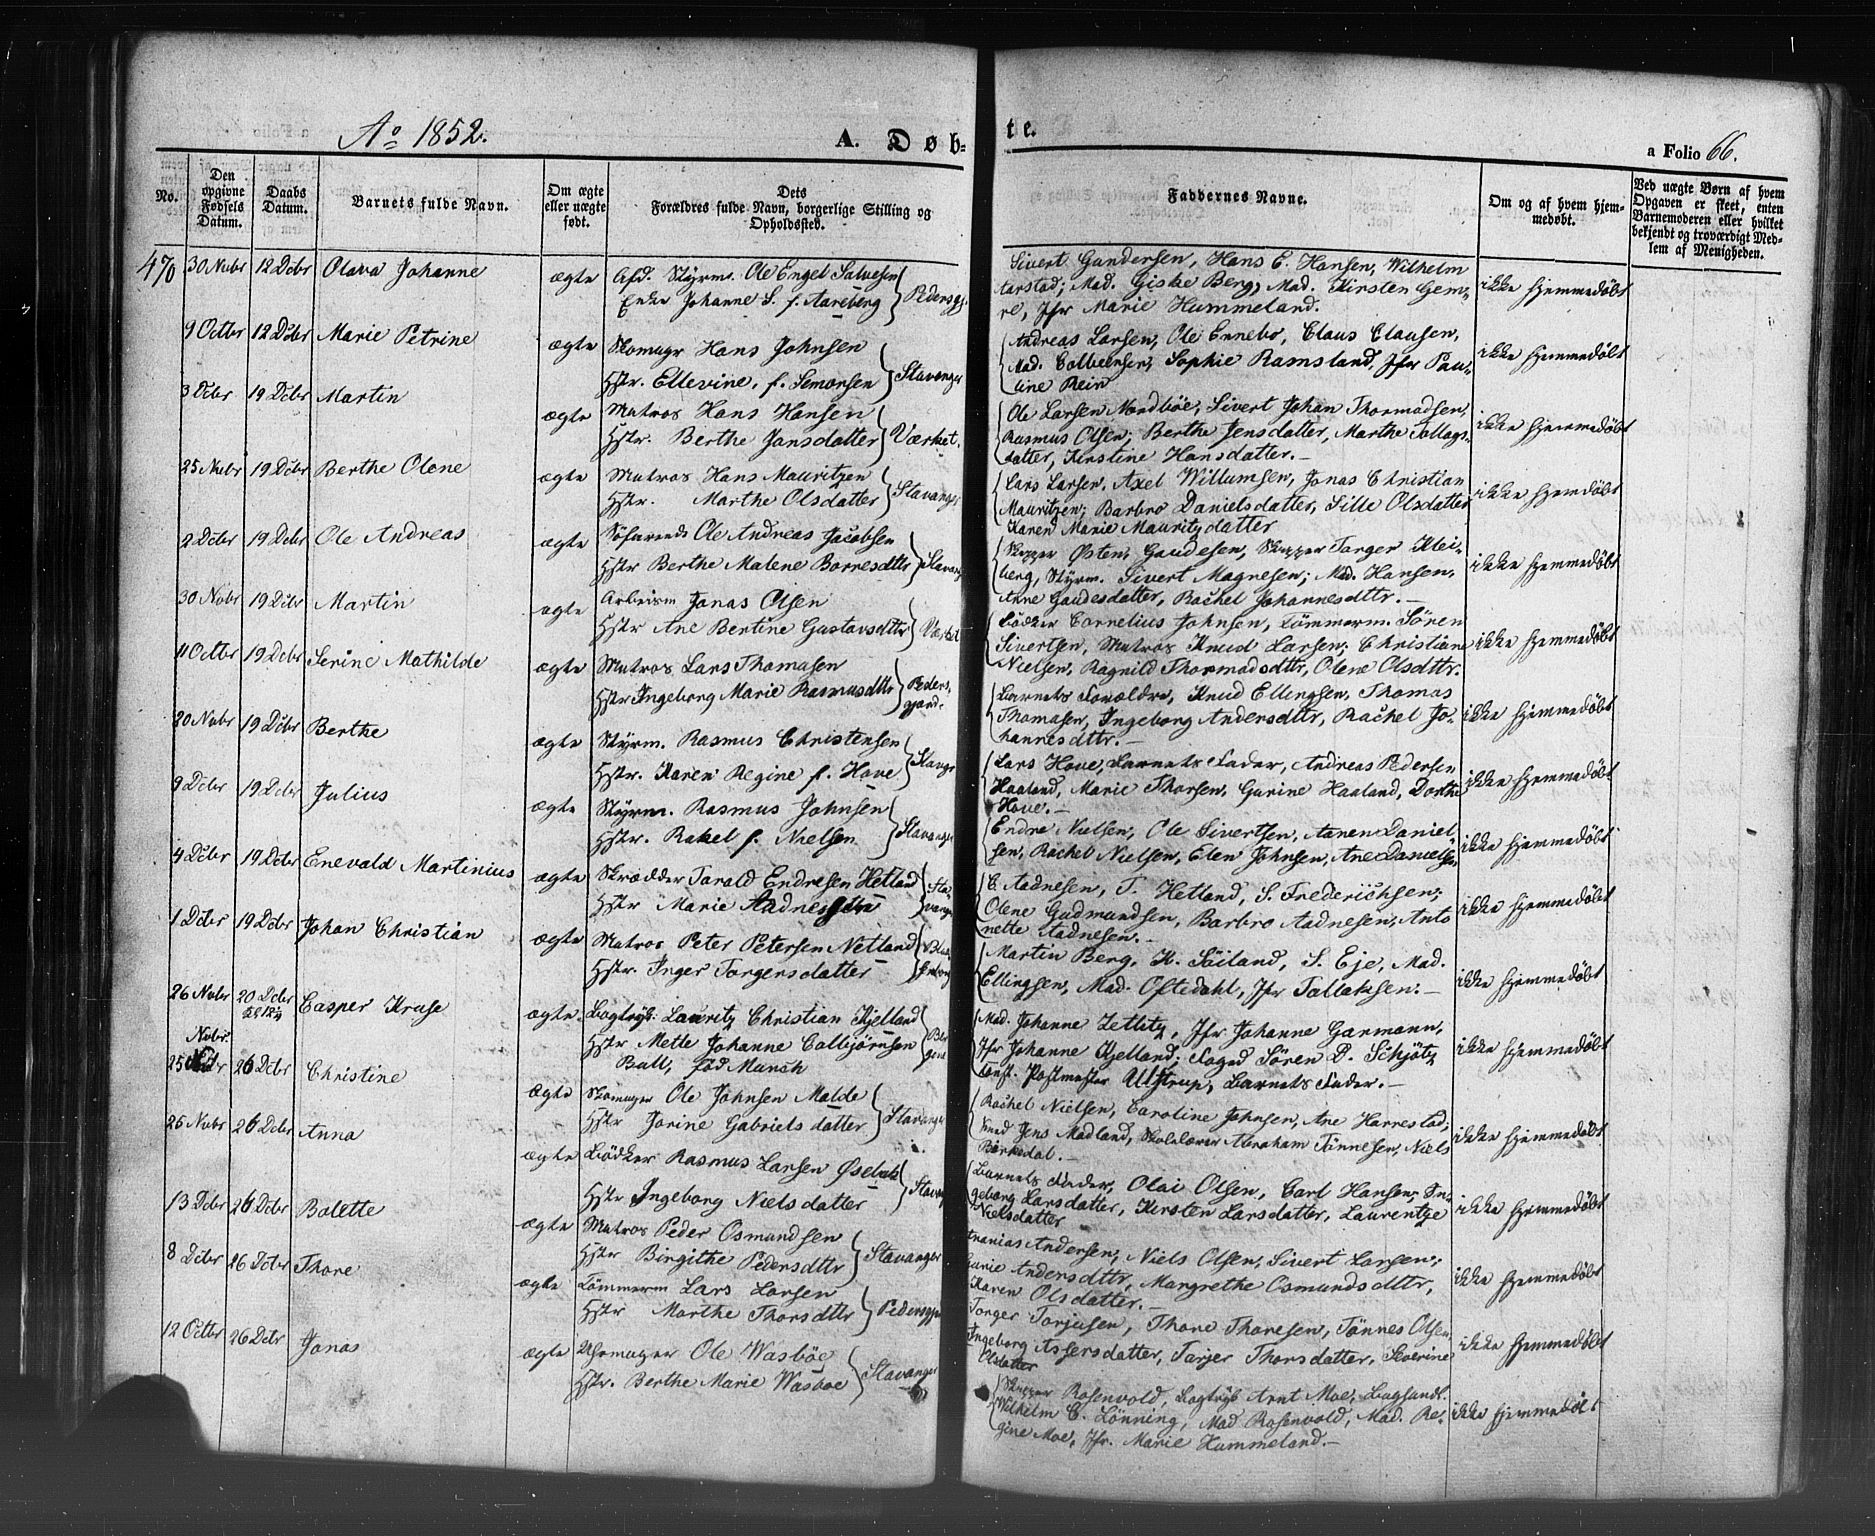 Ao 1852.
A. Døb-
te.
a Folio 66.
No.
Den opgivne Fødsels Datum.
Daabs Datum.
Barnets fulde Navn.
Om ægte eller uægte født.
Dets Forældres fulde Navn, borgerlige Stilling og Opholdssted.
Faddernes Navne.
Om og af hvem hjemmedøbt.
Ved uægte Børn af hvem Opgaven er skeet, enten Barnemoderen eller hvilket bekjendt og troværdigt Medlem af Menigheden.
470 30 Nvbr 12 Dcbr Olava Johanne ægte
Afd. Styrm. Ole Engel Salvesen
Enke Johanne S. f. Aareberg } Pedersgj.
Sivert Gundersen, Hans E. Hansen, Wilhelm
tarstad; Mad. Giske Berg, Mad. Kirsten Gem-
re, Jfr Marie Hummeland.
ikke hjemmedøbt
9 Octbr 12 Dcbr Marie Petrine ægte
Skomagr Hans Johnsen
Hstr. Ellevine, f. Semonsen } Stavanger
Andreas Larsen, Ole Ennebo, Claus Clausen,
Mad. Colbeensen, Sophie Ramsland, Jfr Pau-
line Rein
ikke hjemmedøbt
3 Dcbr 19 Dcbr Martin ægte
Matros Hans Hansen
Hstr. Berthe Jansdatter } Værket.
Ole Larsen Nordbøe, Sivert Johan Thormodsen,
Rasmus Olsen; Berthe Jensdatter, Marthe Tollags-
datter, Kirstine Hansdatter.-
ikke hjemmedøbt
25 Nvbr 19 Dcbr Berthe Olene ægte
Matros Hans Mauritzen
Hstr. Marthe Olsdatter } Stavanger
Lars Larsen, Axel Willumsen, Jonas Christian
Mauritzen; Barbro Danielsdatter, Sille Olsdatter
Karen Marie Mauritzdatter
ikke hjemmedøbt
2 Dcbr 19 Dcbr Ole Andreas ægte
Søfarende Ole Andreas Jacobsen
Hstr Berthe Malene Borresdttr } Stavang
Skipper Østen Gaudesen, Skipper Torger Klei-
berg, Styrm. Sivert Magnesen; Mad. Hansen,
Anne Gaudesdatter, Rachel Johannesdttr.-
ikke hjemmedøbt
30 Nvbr 19 Dcbr Martin ægte
Arbeism Jonas Olsen
Hstr Ane Bertine Gustavsdttr } Værket
Bødker Cornelius Johnsen, Tømmerm. Sören
Sivertsen, Matros Knud Larsen; Christiane
Nielsen, Ragnild Thormodsdttr, Olene Olsdttr.
ikke hjemmedøbt
11 Octbr 19 Dcbr Serine Mathilde ægte
Matros Lars Thomasen
Hstr Ingeborg Marie Rasmusdttr } Peders-
gjord.
Barnets Forældre, Knud Ellingsen, Thomas
Thomasen, Ingeborg Andersdttr, Rachel Jo-
hannesdttr.-
ikke hjemmedøbt
20 Nvbr 19 Dcbr Berthe ægte
Styrm. Rasmus Christensen
Hstr. Karen Regine f. Hove } Stavngr
Lars Hove, Barnets Fader, Andreas Pedersen
Haaland, Marie Thorsen, Gurine Haaland, Dorthe
Hove.-
ikke hjemmedøbt
9 Dcbr 19 Dcbr Julius ægte
Styrm. Rasmus Johnsen
Hstr. Rakel f. Nielsen } Stavanger
Endre Nielsen, Ole Sivertsen, Aanen Daniel
sen, Rachel Nielsen, Elen Johnsen, Ane Danielse
ikke hjemmedøbt
4 Dcbr 19 Dcbr Enevald Martinius ægte
Skrædder Tarald Endresen Hetland
Hstr Marie Aadnessen } Sta-
vanger
E Aadnesen, T. Hetland, S. Frederichsen;
Olene Gudmundsen, Barbro Aadnesen, Anto
nette Aadnesen.-
ikke hjemmedøbt
1 Dcbr 19 Dcbr Johan Christian ægte
Matros Peter Petersen Netland
Hstr. Inger Torgersdatter
Martin Berg, K. Söiland, S. Eje, Mad.
Ellingsen, Mad. Oftedahl, Jfr Tallaksen.-
ikke hjemmedøbt
26 Nvbr 20 Dcbr Casper Kruse ægte.
Bogtryk: Lauritz Christian Kjelland
Hstr Mette Johanne Colbjørnsen
Bull, fød Munch
Mad. Johanne Zetlitz, Jfr Johanne Garmann,
Jfr Johanne Kjelland; Foged Sören D. Schjötz
const. Postmester Ulstrup, Barnets Fader.-
ikke hjemmedøbt
Nvbr.
25 26 Dcbr Christine ægte
Skomager Ole Johnsen Malde
Hstr Jorine Gabrielsdatter } Stavanger
Rachel Nielsen, Caroline Johnsen, Ane Harrestad;
Smed Jens Madland, Skolelærer Abraham Tönnesen, Niels
Birkedal.-
ikke hjemmedøbt
25 Nvbr 26 Dcbr Anna ægte
Bödker Rasmus Larsen Øsebak
Hstr Ingeborg Nielsdatter } Stavang
Barnets Fader, Olai Olsen, Carl Hansen; In-
geborg Larsdatter, Kirsten Larsdatter, Laurentze
Nielsdatter
ikke hjemmedøbt
13 Dcbr 26 Dcbr Bolette ægte
Matros Peder Osmundsen
Hstr Birgithe Pedersdttr } Stavanger
Ananias Andersen, Niels Olsen, Sivert Larsen;
Marie Andersdttr, Margrethe Osmundsdttr,
Karen Olsdatter.-
ikke hjemmedøbt
8 Dcbr 26 Dcbr Thore ægte
Tömmerm Lars Larsen
Hstr Marthe Thorsdttr } Pedersgjer
Torger Torjusen, Thore Thoresen, Tönnes Olsen,
Ingeborg Assersdatter, Tarjer Thorsdatter, Severine
Olsdatter
ikke hjemmedøbt
12 Octbr 26 Dcbr Jonas ægte
Uhrmager Ole Wasbøe
Hstr. Berthe Marie Wasboe } Stavanger
Skipper Rosenvold, Bogtryk Arnt Moe, Boghandl.
Wilhelm C. Lönning, Mad Rosenvold, Mad. Re-
gine Moe, Jfr. Marie Hummeland.-
ikke hjemmedøbt